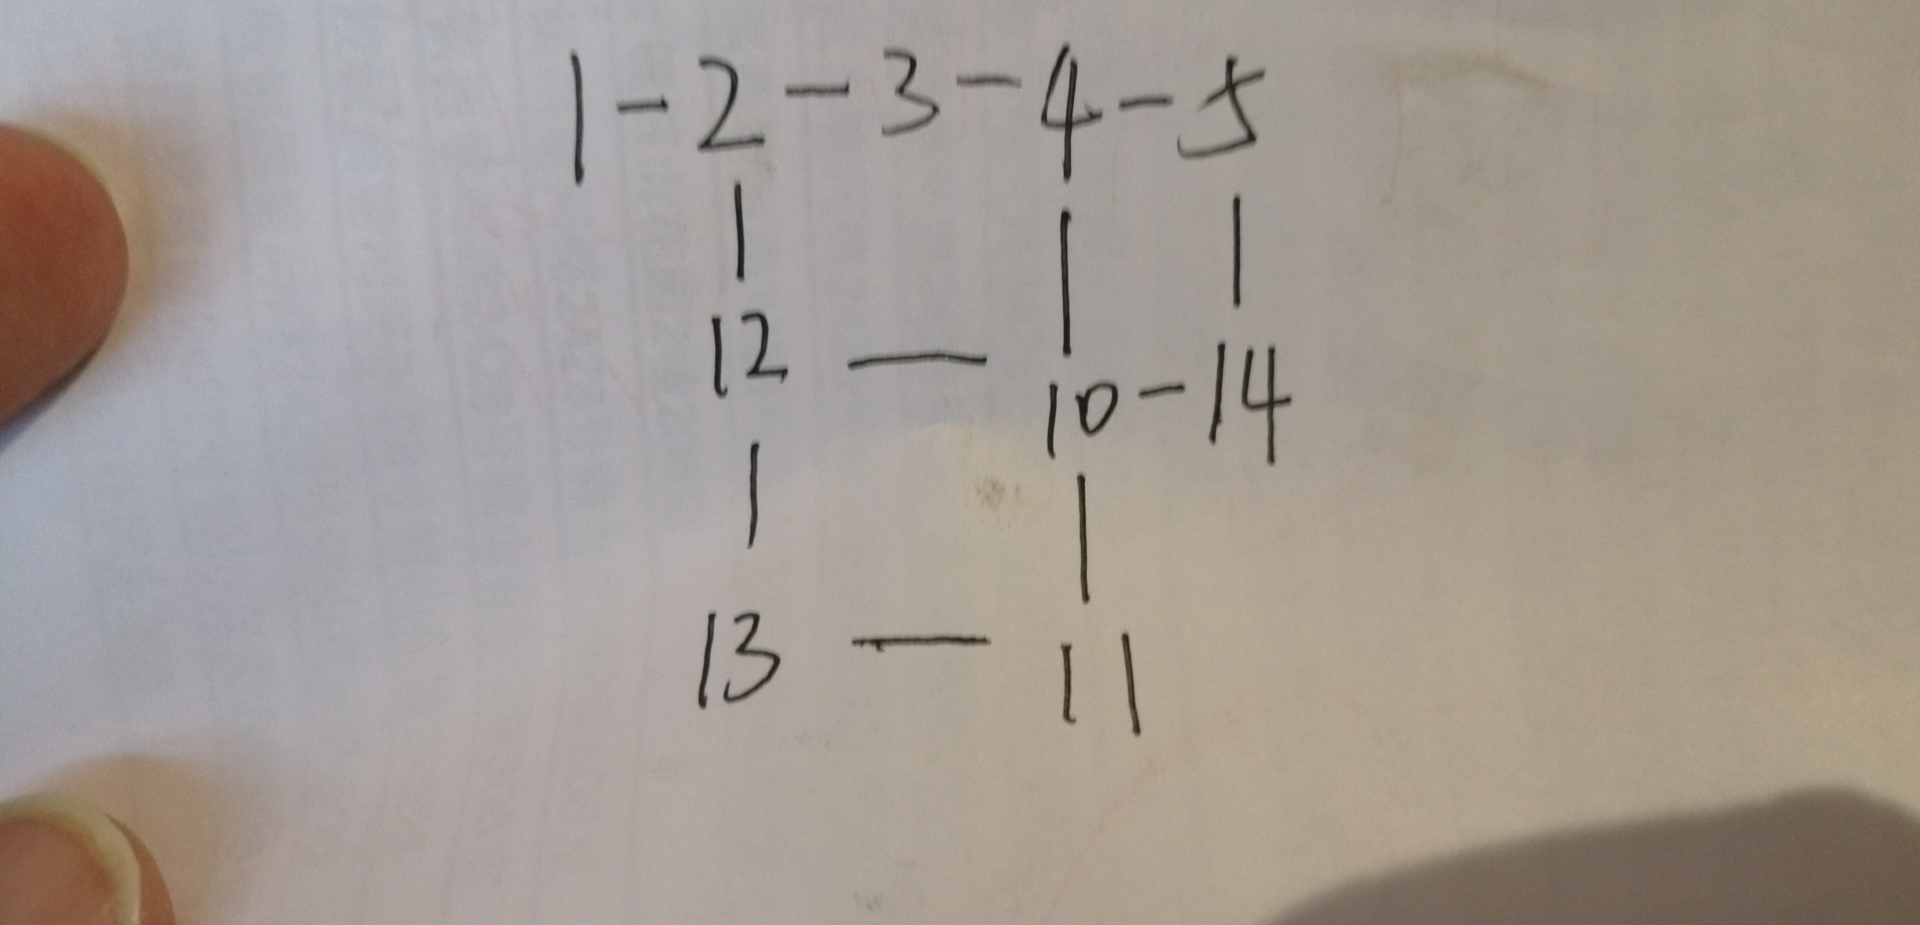 1-2-3-4-5
12 — 10-14
13 — 11